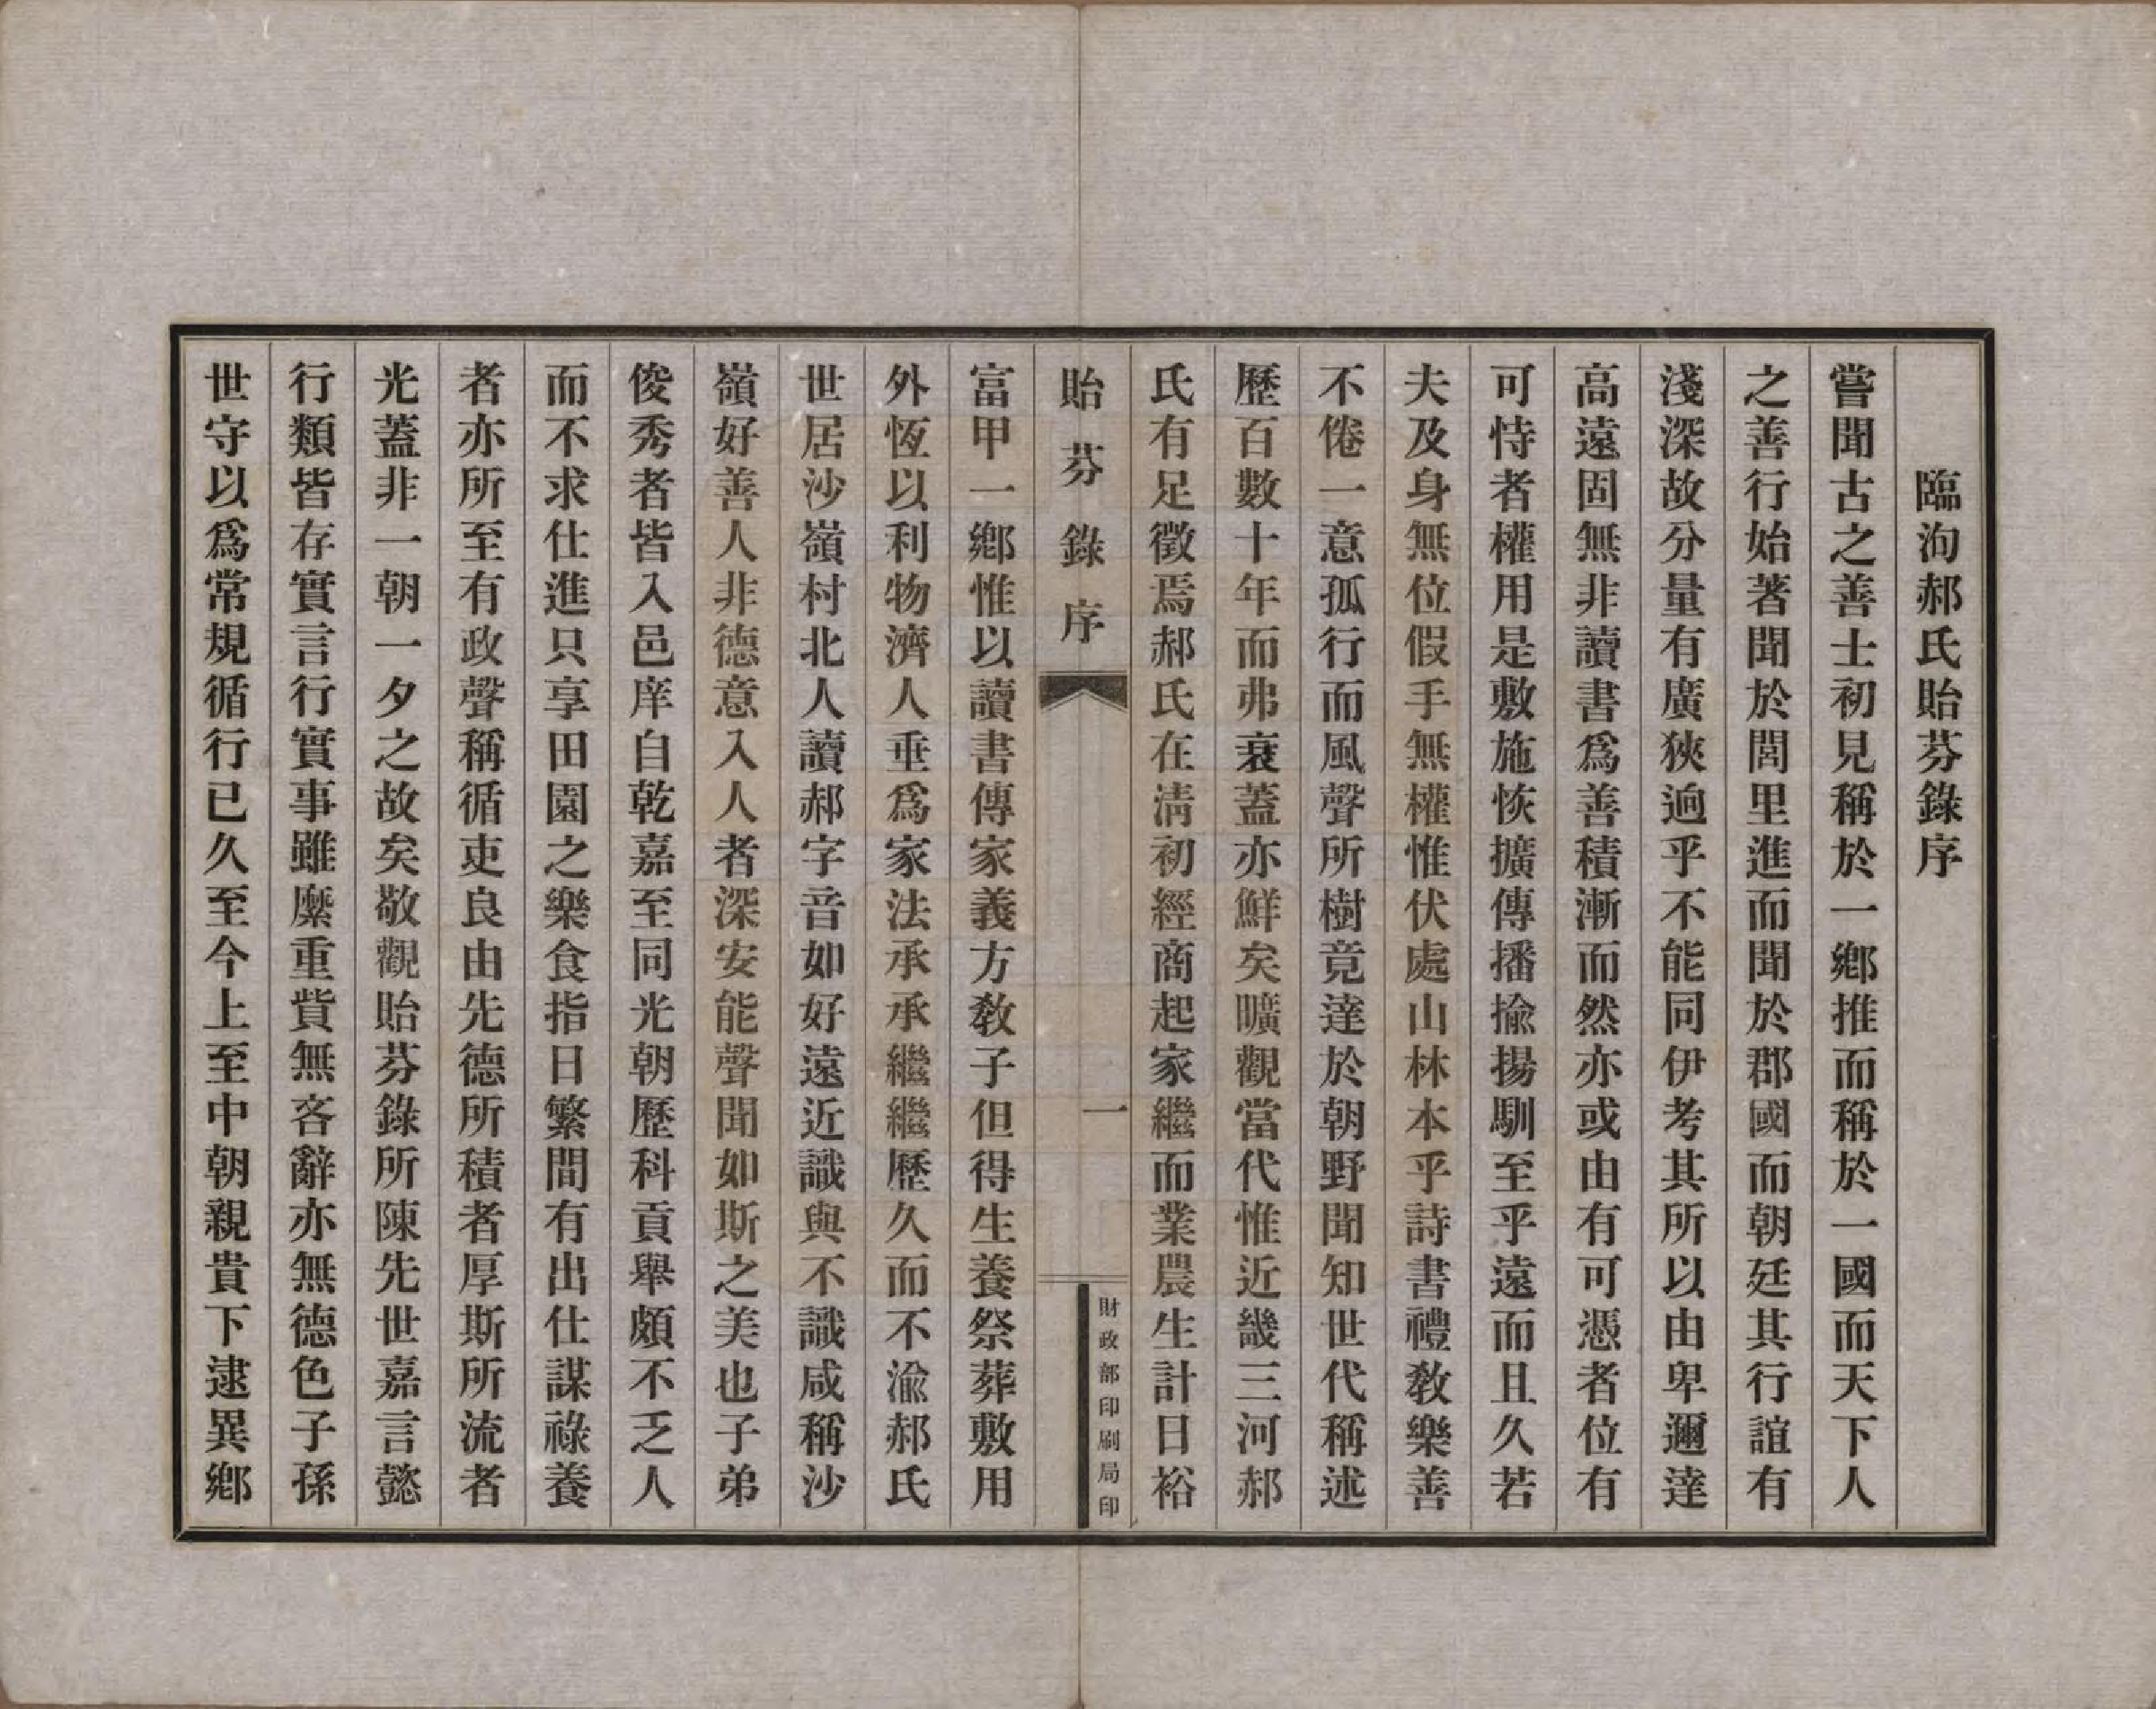 臨泃郝氏貽芬錄序
嘗聞古之善士初見稱於一鄉推而稱於一國而天下人
之善行始著聞於閭里進而聞於郡國而朝廷其行誼有
淺深故分量有廣狹逈乎不能同伊考其所以由卑邇達
高遠固無非讀書爲善積漸而然亦或由有可憑者位有
可恃者權用是敷施恢擴傳播揄揚馴至乎遠而且久若
夫及身無位假手無權惟伏處山林本乎詩書禮敎樂善
不倦一意孤行而風聲所樹竟達於朝野聞知世代稱述
歷百數十年而弗衰蓋亦鮮矣曠觀當代惟近畿三河郝
氏有足徵焉郝氏在淸初經商起家繼而業農生計日裕
貽芬錄序
一
財政部印刷局印
富甲一鄉惟以讀書傳家義方敎子但得生養祭葬敷用
外恆以利物濟人垂爲家法承承繼繼歷久而不渝郝氏
世居沙嶺村北人讀郝字音如好遠近識與不識咸稱沙
嶺好善人非德意入人者深安能聲聞如斯之美也子弟
俊秀者皆入邑庠自乾嘉至同光朝歷科貢舉頗不乏人
而不求仕進只享田園之樂食指日繁間有出仕謀祿養
者亦所至有政聲稱循吏良由先德所積者厚斯所流者
光蓋非一朝一夕之故矣敬觀貽芬錄所陳先世嘉言懿
行類皆存實言行實事雖縻重貲無吝辭亦無德色子孫
世守以爲常規循行已久至今上至中朝親貴下逮異鄉